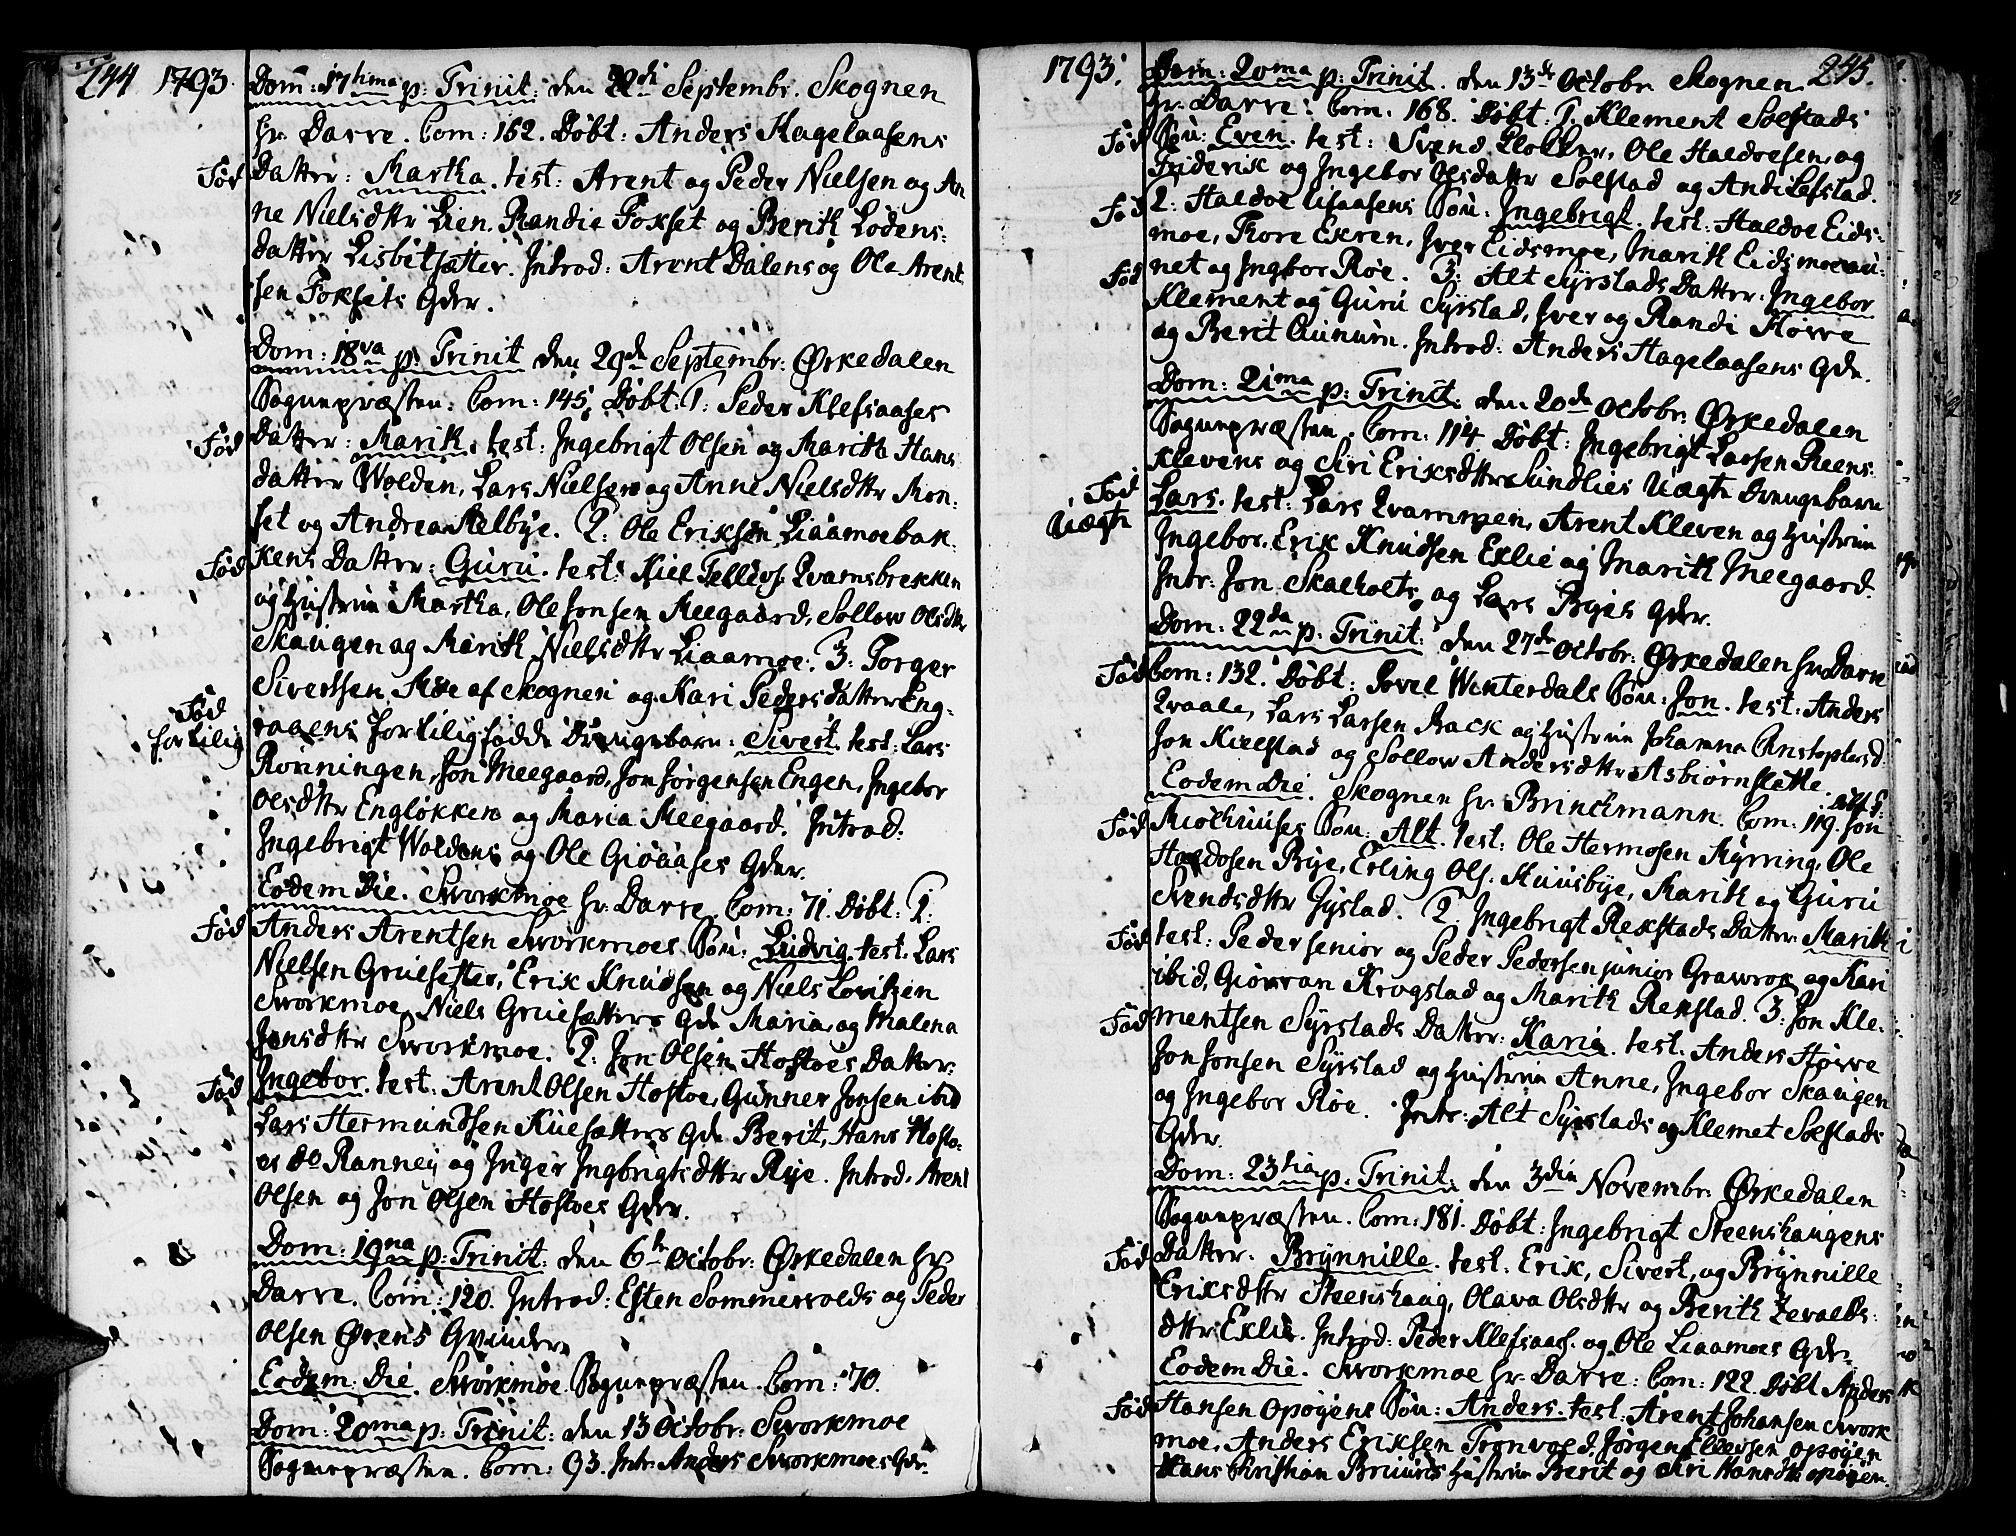 244 1793.
Dom: 17tima p: Trinit: den 22di Septembr. Skognen
hr. Darre. Com: 162. Døbt: Anders Hagelaasens
Fød Datter: Martha. test: Arent og Peder Nielsen og An
ne Nielsdttr Lien, Randie Foxset og Berith Lodens:
datter Lisbetsætter. Introd: Arent Dalens og Ole Arent
sen Foxsets Gdr.
Dom: 18va p: Trinit den 29de Septembr: Ørkedalen
Sognepræsten: Com: 145. Døbt: 1: Peder Klefsaases
Fød Datter: Marith. test: Ingebrigt Olsen og Marith Hans
datter Wolden, Lars Nielsen og Anne Nielsdttr Mon:
set og Andrea Melbye. 2: Ole Eriksen Liaamoebak:
Fød kens Datter: Guru. test: Kiel Tellefs. Qvamsbrekken
og Hustrue Martha, Ole Jonsen Meegaard, Sollow Olsdttr
Skaugen og Marith Nielsdttr Liaamoe. 3: Torger
Sivertsen Moe af Skognen og Kari Pedersdatter Eng-
Fød
for tilig raaens for tilig fødde Drengebarn: Sivert. test: Lars
Rønningen, Jon Meegaard, Jon Jørgensen Engen, Ingebor
Olsdttr Engløkken og Maria Meegaard. Introd:
Ingebrigt Woldens og Ole Giøaases Gdr.
Eodem Die. Sworkmoe hr. Darre. Com: 71. Døbt: 1:
Fød Anders Arentsen Sworkmoes Søn: Ludvig. test. Lars
Nielsen Gruesetter, Erik Knudsen og Niels Lovitzen
Sworkmoe, Niels Gruesætters Gdr Maria, og Malena
Jonsdttr Sworkmoe. 2: Jon Olsen Hostoes Datter:
Fød Ingebor. test: Arent Olsen Hostoe, Gunner Jonsen ibid
Lars Hermundsen Kuesætters Gdr Berit, Hans Hosto-
es do Ranney og Inger Ingbrigtsdttr Rye. Introd. Arent
Olsen og Jon Olsen Hostoes Gdr.
Dom: 19na p: Trinit: den 6te Octobr: Ørkedalen hr
Darre. Com: 120. Introd: Esten Sommervolds og Peder
Olsen Ørens Qvinder.
Eodem Die. Sworkmoe Sognepræsten. Com: 70.
Dom: 20ma p: Trinit: den 13 Octobr: Sworkmoe
Sognepræsten. Com: 93. Intr: Anders Sworkmoes Gdr.
1793. 245.
Dom: 20ma p: Trinit. den 13de Octobr. Skognen
hr. Darre: Com. 168. Døbt: 1. Klement Solstads
Fød Søn: Even. test: Svend Blokker, Ole Haldoesen, og
Friderik og Ingebor Olsdattr Solstad og Andi Lefstad.
Fød 2: Haldoe Ulsaasens Søn: Ingebrigt. test: Haldoe Eids:
moe, Thore Ekren, Iver Eidsmoe, Marith Eidsmoeau:
Fød net og Ingbor Røe. 3: Alt Syrstads Datter: Ingebor
Klement og Guru Syrstad, Iver og Randi Horre
og Berit Aunum. Introd: Anders Hagelaasens Gdr.
Dom: 21ma p: Trinit: den 20de Octobr: Ørkedalen
Sognepræsten. Com: 114 Døbt: Ingebrigt Larsen Reens
Klevens og Siri Eriksdttr Sundlies Uægte Drengebarn
Fød
Uægte Lars. test: Lars Qvammen, Arent Kleven og Hustrue
Ingebor, Erik Knudsen Exlie og Marith Meegaard.
Intr: Jon Skalholts og Lars Byes Gdr.
Dom: 22da p: Trinit: den 27de Octobr: Ørkedalen hr Darre
Fød Com: 132. Døbt: Povel Winterdals Søn: Jon. test: Anders
Qvaale, Lars Larsen Back og Hustrue Johanna Christophersd
Jon Kielstad og Sollow Andersdttr Asbiørnslette.
Eodem Die. Skognen hr. Brinchmann. Com: 119. Døbt 1: Jon
Fød Miølhuuses Søn: Alt. test: Ole Hermosen Kyrring, Ole
Haldosen Bye, Erling Ols. Huusbye, Marith og Guru
Svendsdttr Gystad. 2: Ingebrigt Rekstads Datter: Marith
Fød test: Peder senior og Peder Pedersen junior Gravrok og Kari
ibid, Giøvran Krogstad og Marith Rekstad. 3: Jon Kle-
Fød mentsen Syrstads Datter: Karia. test. Anders Horre
Jon Jonsen Syrstad og Hustrue Anne, Ingebor Skaugen
og Ingebor Røe. Intr: Alt Syrstads og Klemet Solstads
Gdr.
Dom: 23tia p: Trinit: den 3die Novembr: Ørkedalen
Sognepræsten. Com: 181. Døbt: Ingebrigt Steenshaugens
Fød Datter. Brynnille. test: Erik, Sivert, og Brynnille
Eriksdttr Steenshaug, Olava Olsdttr og Berith Zevalds:
dttr Exlie. Introd: Peder Klefsaas. og Ole Liaamoes Gdr.
Eodem Die. Sworkmoe hr. Darre: Com: 122. Døbt Anders
Fød Hansen Opøyens Søn: Anders. test: Arent Johansen Swork
moe, Anders Eriksen Tronvoed, Jørgen Ellevsen Opøyen
Hans Christian Bruuns Hustrue Berit og Siri Hansdttr Opøyen.